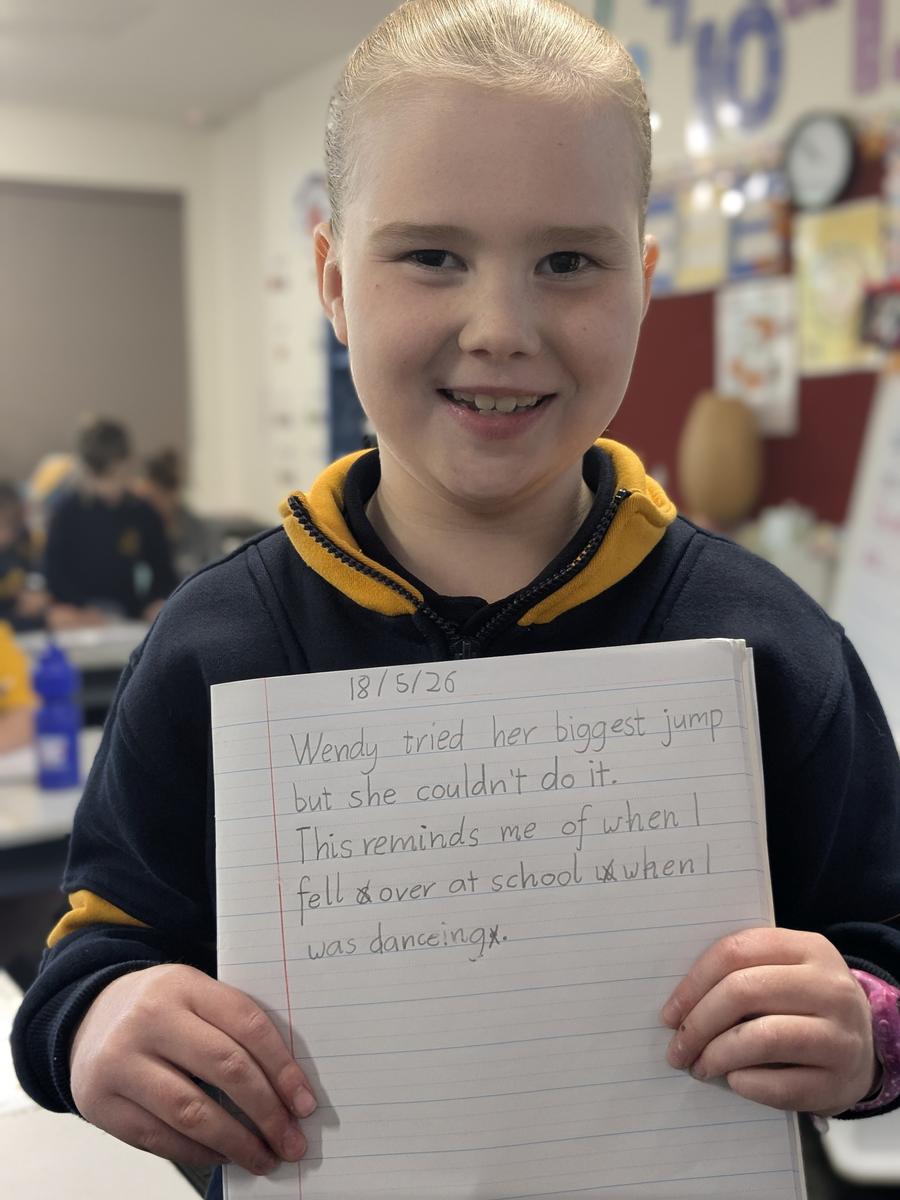 18/5/26
Wendy tried her biggest jump
but she couldn't do it.
This reminds me of when I
fell over at school when I
was danceing.
10